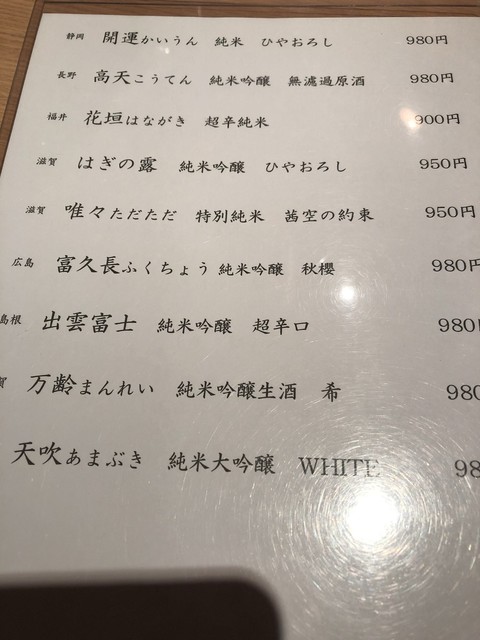 静岡 開運かいうん 純米 ひやおろし 980円
長野 高天こうてん 純米吟醸 無濾過原酒 980円
福井 花垣はながき 超辛純米 900円
滋賀 はぎの露 純米吟醸 ひやおろし 950円
滋賀 唯々ただただ 特別純米 茜空の約束 950円
広島 富久長ふくちょう 純米吟醸 秋櫻 980円
島根 出雲富士 純米吟醸 超辛口 980
賀 万齢まんれい 純米吟醸生酒 希 980
天吹あまぶき 純米大吟醸 WHITE 98